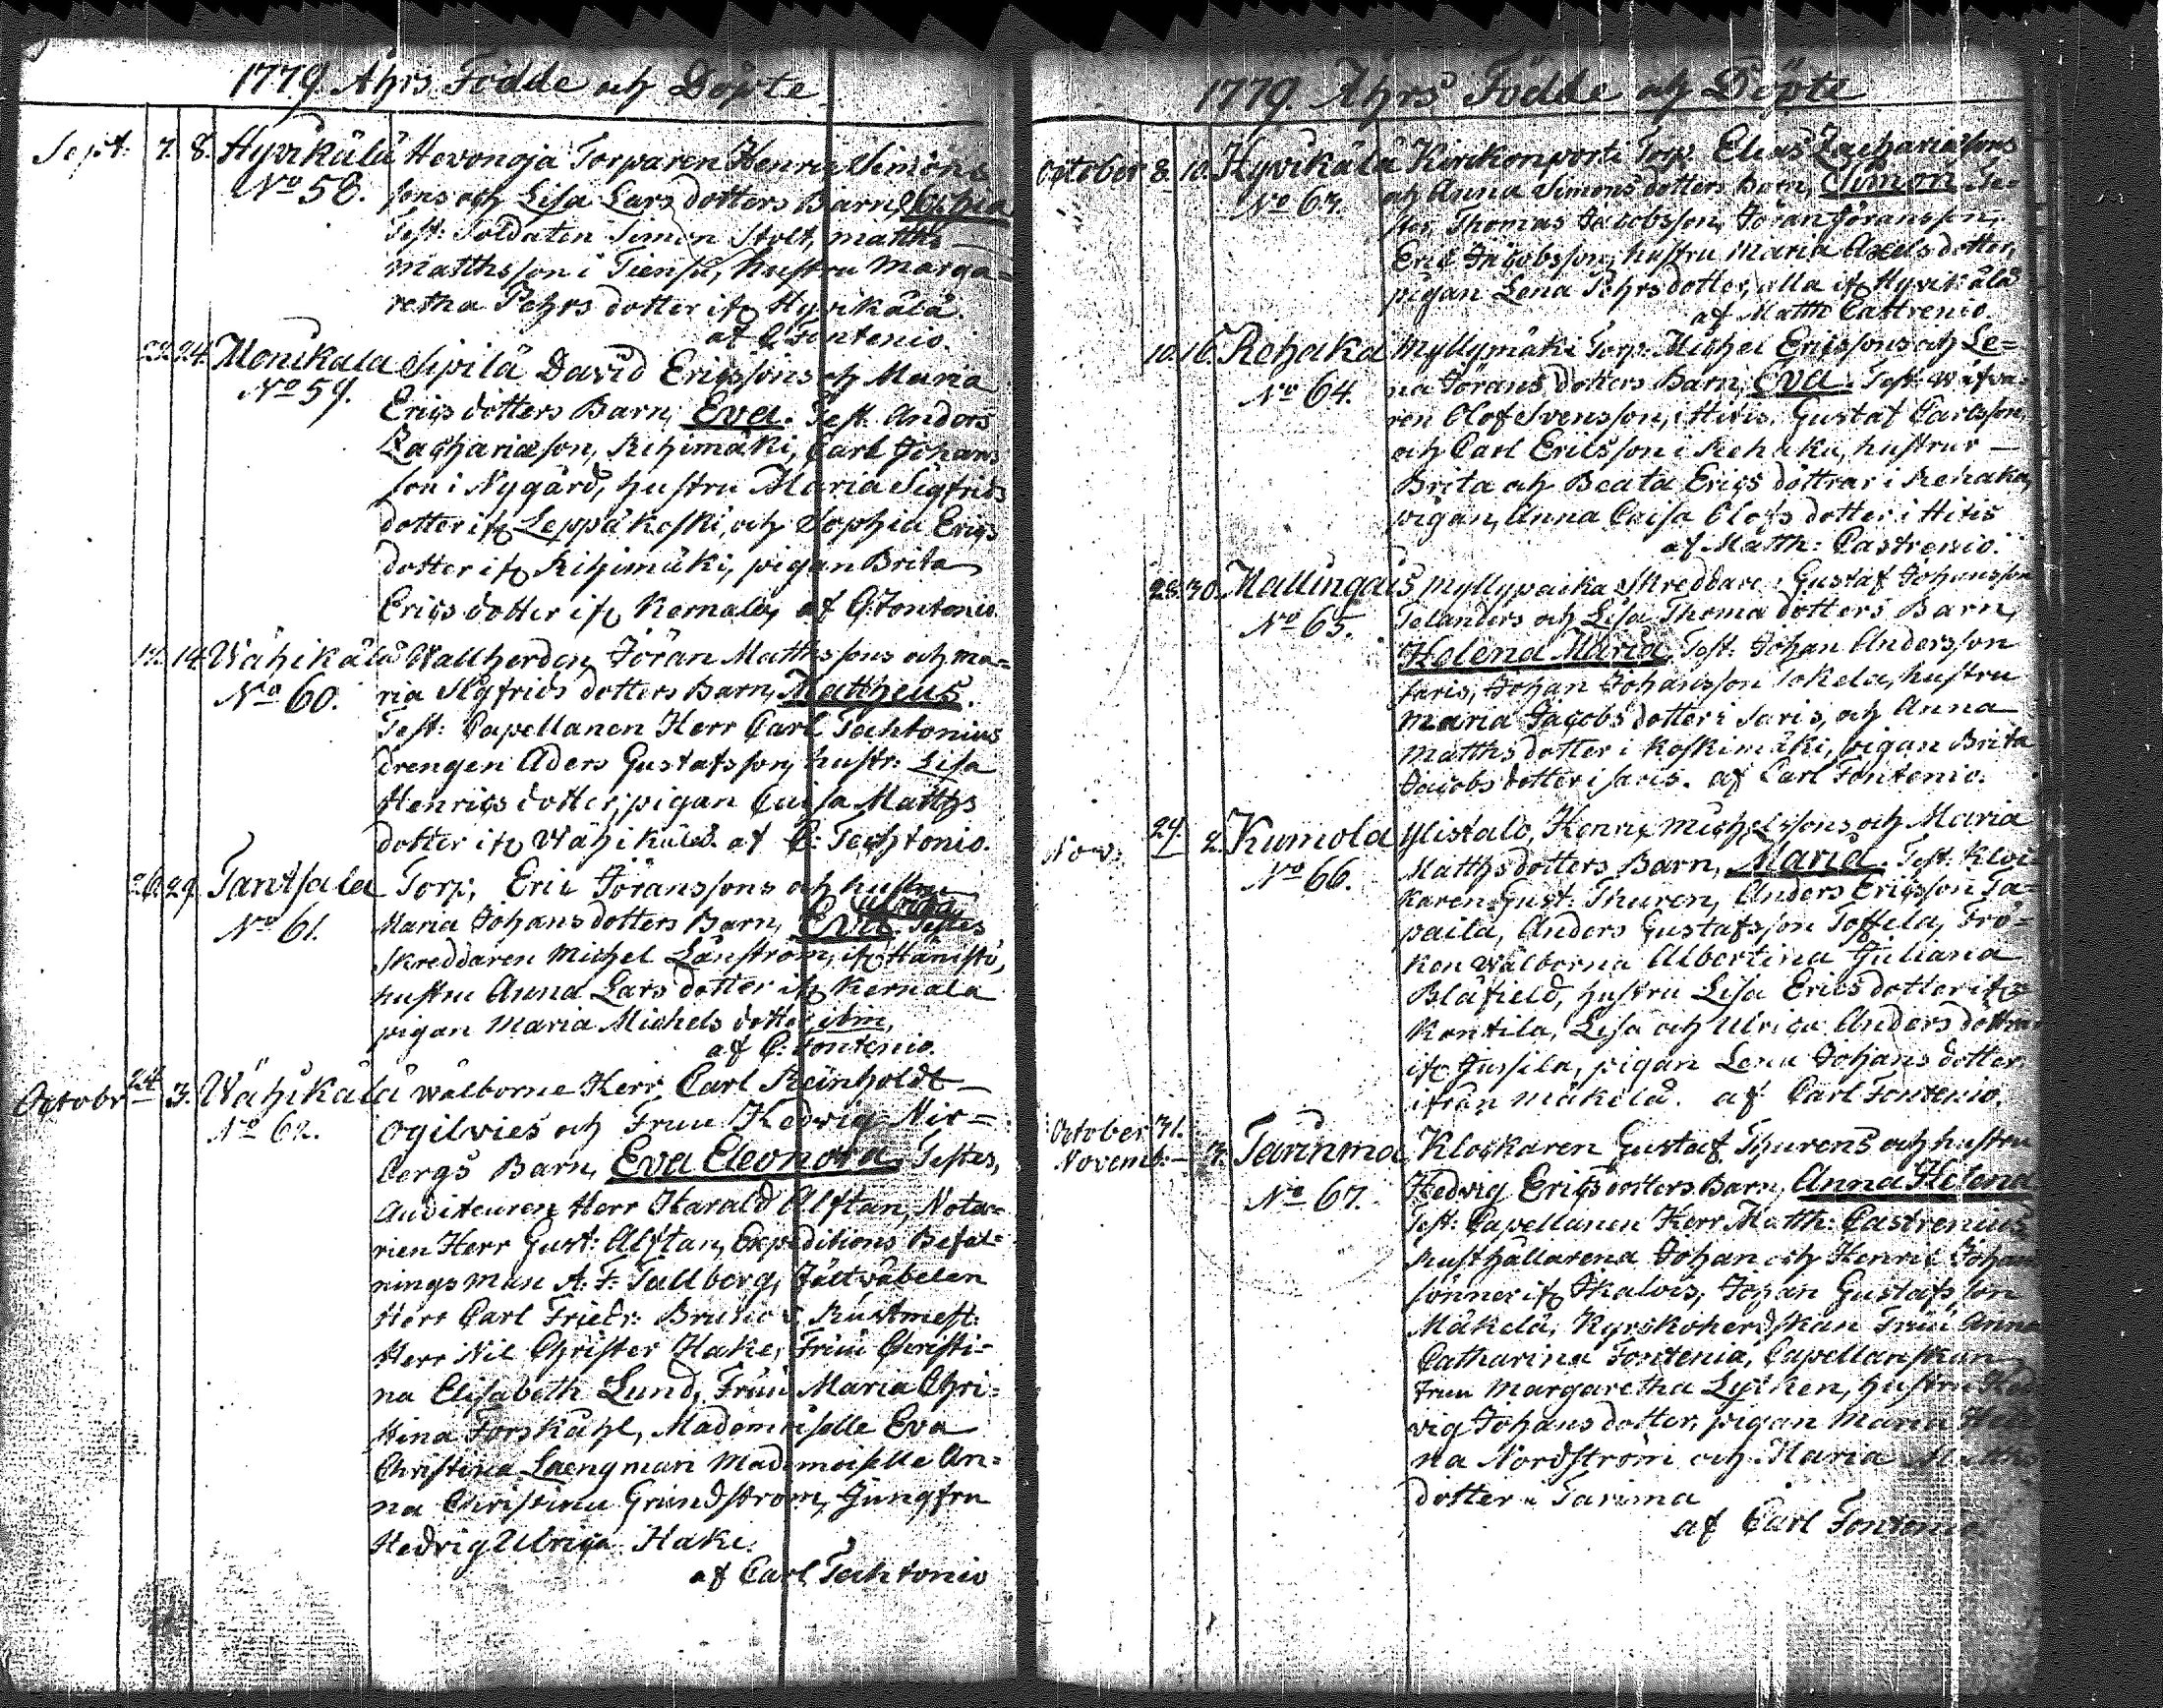 1779 Åhrs Födde och Döpte
Sept: 7. 8. Hyvikälä Hevonoja Torparen Henric Simons
No 58. sons och Lisa Lars dotters Barn, Sophia
Test: Soldaten Simon Stolt, Matths
Matthsson i Tiensu, hustru Marga=
retha Pehrs dotter ifr Hyvikälä.
af C Fontenio.
22. 24. Monikala Sipilä David Ericssons och Maria
No 59. Erics dotters Barn, Eva. Test. Anders
Zachariæson, Rihimäki, Carl Johans
son i Nygård, hustru Maria Sigfrids
dotter ifr Leppäkoski, och Sophia Erics
dotter ifr Rihimäki, pigan Brita
Erics dotter ifr Kernala, af C: Fontenio
14. Wähikälä Wallherden Jöran Matthssons och Ma=
No 60. ria Sigfrids dotters Barn, Mattheus.
Test: Capellanen Herr Carl Techtonius
drengen Aders Gustafsson, hustr: Lisa
Henrics dotter, pigan Caisa Matths
dotter ifr Wähikälä. af C: Techtonio.
26. 29. Tantsala Torp; Eric Jöranssons och hustru
Ulrica
No 61. Maria Johans dotters Barn, Eva Testes
Skreddaren Michel Länström, ifr Hänistö,
hustru Anna Lars dotter ifr Kernala
pigan Maria Michels dotter ibm,
af C: Fontenio.
Octobr 24 3. Wähikälä Wälborne Herr Carl Reinholdt
No 62. Ogilvies och Fruu Hedvig Nir=
bergs Barn, Eva Eleonora, Testes,
Auditeuren Herr Harald Alftan, Nota=
rien Herr Gust: Alftan, Expeditions Befal=
nings man A: F: Tallberg, Fältväbelen
Herr Carl Friedr: Brunow, Rustmest:
Herr Nil Christer Hake, Fruu Christi=
na Elisabeth Lund, Fruu Maria Chri=
stina Forskåhl, Mademoiselle Eva
Christina Laengman Mademoiselle An=
na Christina Grundström, Jungfru
Hedvig Ulrica Hake.
af Carl Techtonio
1779. Åhrs Födde och Döpte
October 8. 10. Hyvikälä Kirckonporti Torp: Elias Zachariæsons
No 63. och Anna Simons dotters Barn, Simon Te=
stes, Thomas Jacobsson, Jöran Jöransson,
Eric Jacobsson, hustru Maria Axels dotter,
pigan Lena Pehrs dotter, alla ifr Hyvikälä
af Matth Castrenio.
10. 16. Rehaka Myllymäki Torp: Michel Ericssons och Le=
No 64. na Jörans dotters Barn, Eva. Test: Wäfva=
ren Olof Svensson, i Hitis, Gustaf Carlsson,
och Carl Ericsson i Rehaka, hustrur
Brita och Beata Erics döttrar i Rehaka,
pigan, Anna Caisa Olofs dotter i Hitis
af Matth: Castrenio.
28. 30. Mallingais Myllypaika Skreddare Gustaf Johansson
No 65. Telanders och Lisa Thomæ dotters Barn,
Helena Maria, Test: Johan Andersson
Saris, Johan Johansson Tokela, hustru
Maria Jacobs dotter i Saris, och Anna
Matths dotter i Koskimäki, pigan Brita
Jacobs dotter i Saris. af Carl Fontenio.
Nov: 29. 2. Kumola Ylistalo, Henric Michelssons och Maria
No 66. Matths dotters Barn, Maria. Test: Kloc
karen Gust: Thuren, Anders Ericsson Ta=
paila, Anders Gustafsson Toffila, Frö=
ken Wälborna Albertina Juliana
Blåfield, hustru Lisa Erics dotter ifr
Kontila, Lisa och Ulrica Anders döttrar
ifr Jussila, pigan Lena Johans dotter
ifrån Mäkelä. af Carl Fontenio.
October 31.
Novemb: 3. Tarinma Klockaren Gustaf Thurens och hustru
No 67. Hedvig Erics dotters Barn, Anna Helena
Test: Capellanen Herr Matth: Castrenius
Rusthållarena Johan och Henric Johans
sönner ifr Ikalois, Johan Gustafsson
Mäkelä, Kyrckoherdskan Fruu Anna
Catharina Fontenia, Capellanskan
Fruu Margaretha Lycken, hustru Hed
vig Johans dotter, pigan Maria
na Nordström och Maria Matths
dotter i Tarinma
af Carl Fontenio.